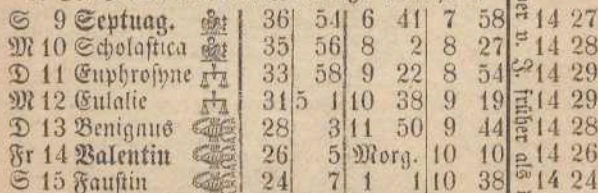 S 9 Septuag. 36 54 6 41 7 58 14 27
M 10 Scholaſtica 35 56 8 2 8 27 14 28
D 11 Euphroſyne 33 58 9 22 8 54 14 29
M 12 Eulalie 31 5 1 10 38 9 19 14 29
D 13 Benignus 28 3 11 50 9 44 14 28
Fr 14 Valentin 26 5 Morg. 10 10 14 26
S 15 Fauſtin 24 7 1 1 10 38 14 24
v. J. früher als